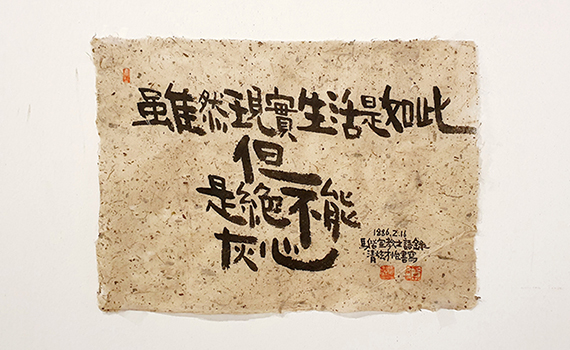 雖然現實生活是如此
但
是絕不能
灰心
1886.2.16
馬偕宣教士語錄
書寫